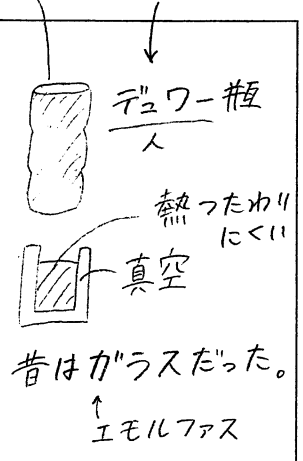 デュワー瓶
人
熱つたわり
にくい
真空
昔はガラスだった。
エモルファス